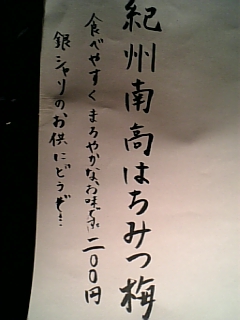 紀州南高はちみつ梅
食べやすくまろやかなお味です 二〇〇円
銀シャリのお供にどうぞ!!